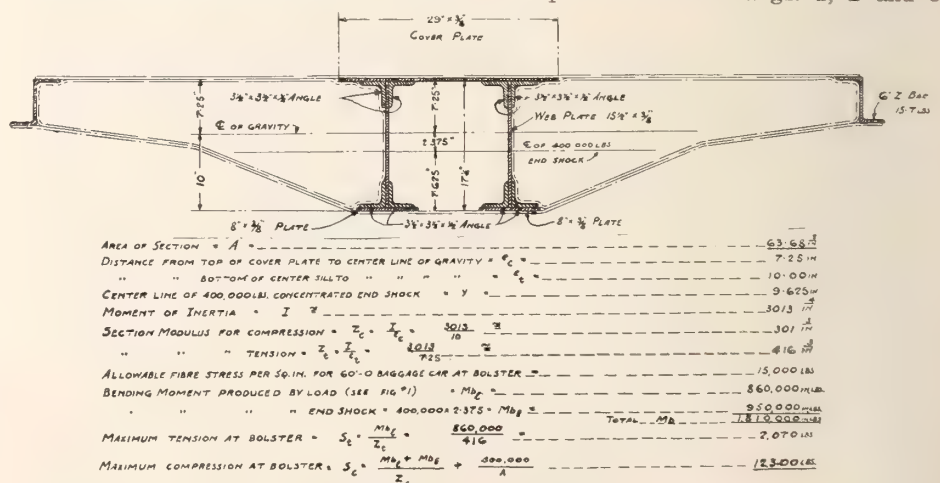 29" × 3/8"
COVER PLATE
3½" × 3½" × ½" ANGLE
3½ × 3½ × ½" ANGLE
WEB PLATE 15½" × 3/8"
6" Z BAR
15.7 LBS
7.25"
7.25"
℄ OF GRAVITY
2.375"
℄ OF 400,000 LBS
END SHOCK
10"
7.625"
17¼"
8" × 3/8" PLATE
3½ × 3½ × ½" ANGLE
8" × 3/8" PLATE
AREA OF SECTION = A = 63.68 IN²
DISTANCE FROM TOP OF COVER PLATE TO CENTER LINE OF GRAVITY = e_c = 7.25 IN
" " BOTTOM OF CENTER SILL TO " " " = e_t = 10.00 IN
CENTER LINE OF 400,000 LBS. CONCENTRATED END SHOCK = Y = 9.625 IN
MOMENT OF INERTIA = I = 3013 IN⁴
SECTION MODULUS FOR COMPRESSION = Z_c = I/e_c = 3013/10 = 301 IN³
" " " TENSION = Z_t = I/e_t = 3013/7.25 = 416 IN³
ALLOWABLE FIBRE STRESS PER SQ. IN. FOR 60'-0 BAGGAGE CAR AT BOLSTER = 15,000 LBS
BENDING MOMENT PRODUCED BY LOAD (SEE FIG #1) = Mb_L = 860,000 IN LBS
" " " " END SHOCK = 400,000 × 2.375 = Mb_E = 950,000 IN LBS
TOTAL Mb 1,810,000 IN LBS
MAXIMUM TENSION AT BOLSTER = S_t = Mb_L/Z_t = 860,000/416 = 2,070 LBS
MAXIMUM COMPRESSION AT BOLSTER = S_c = Mb_L + Mb_E/Z_c + 400,000/A 12300 LBS